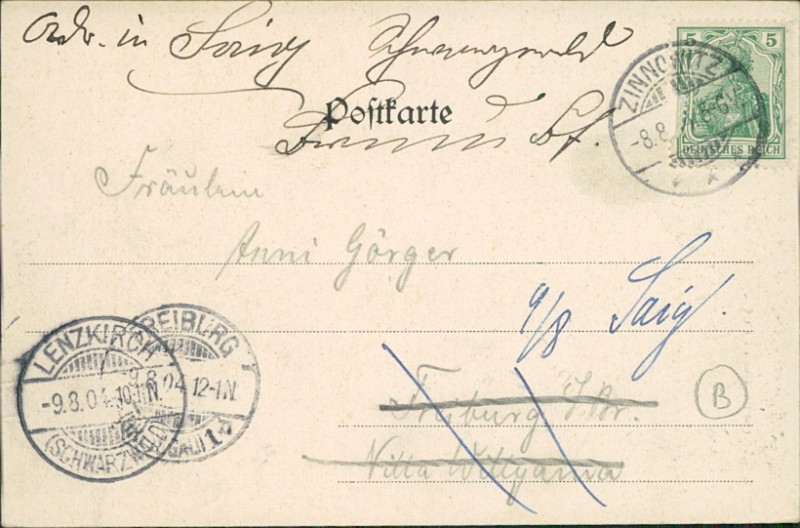 Adr. in Saig Schwarzwald
5 5
DEUTSCHES REICH
ZINNOWITZ
-8.8.
Postkarte
Fräulein
Anni Görger
9/8 Saig.
FREIBURG
9.8.04.12-1N.
LENZKIRCH
-9.8.04.10-11N.
(SCHWARZWALD)
Freiburg i/Br.
Villa
B